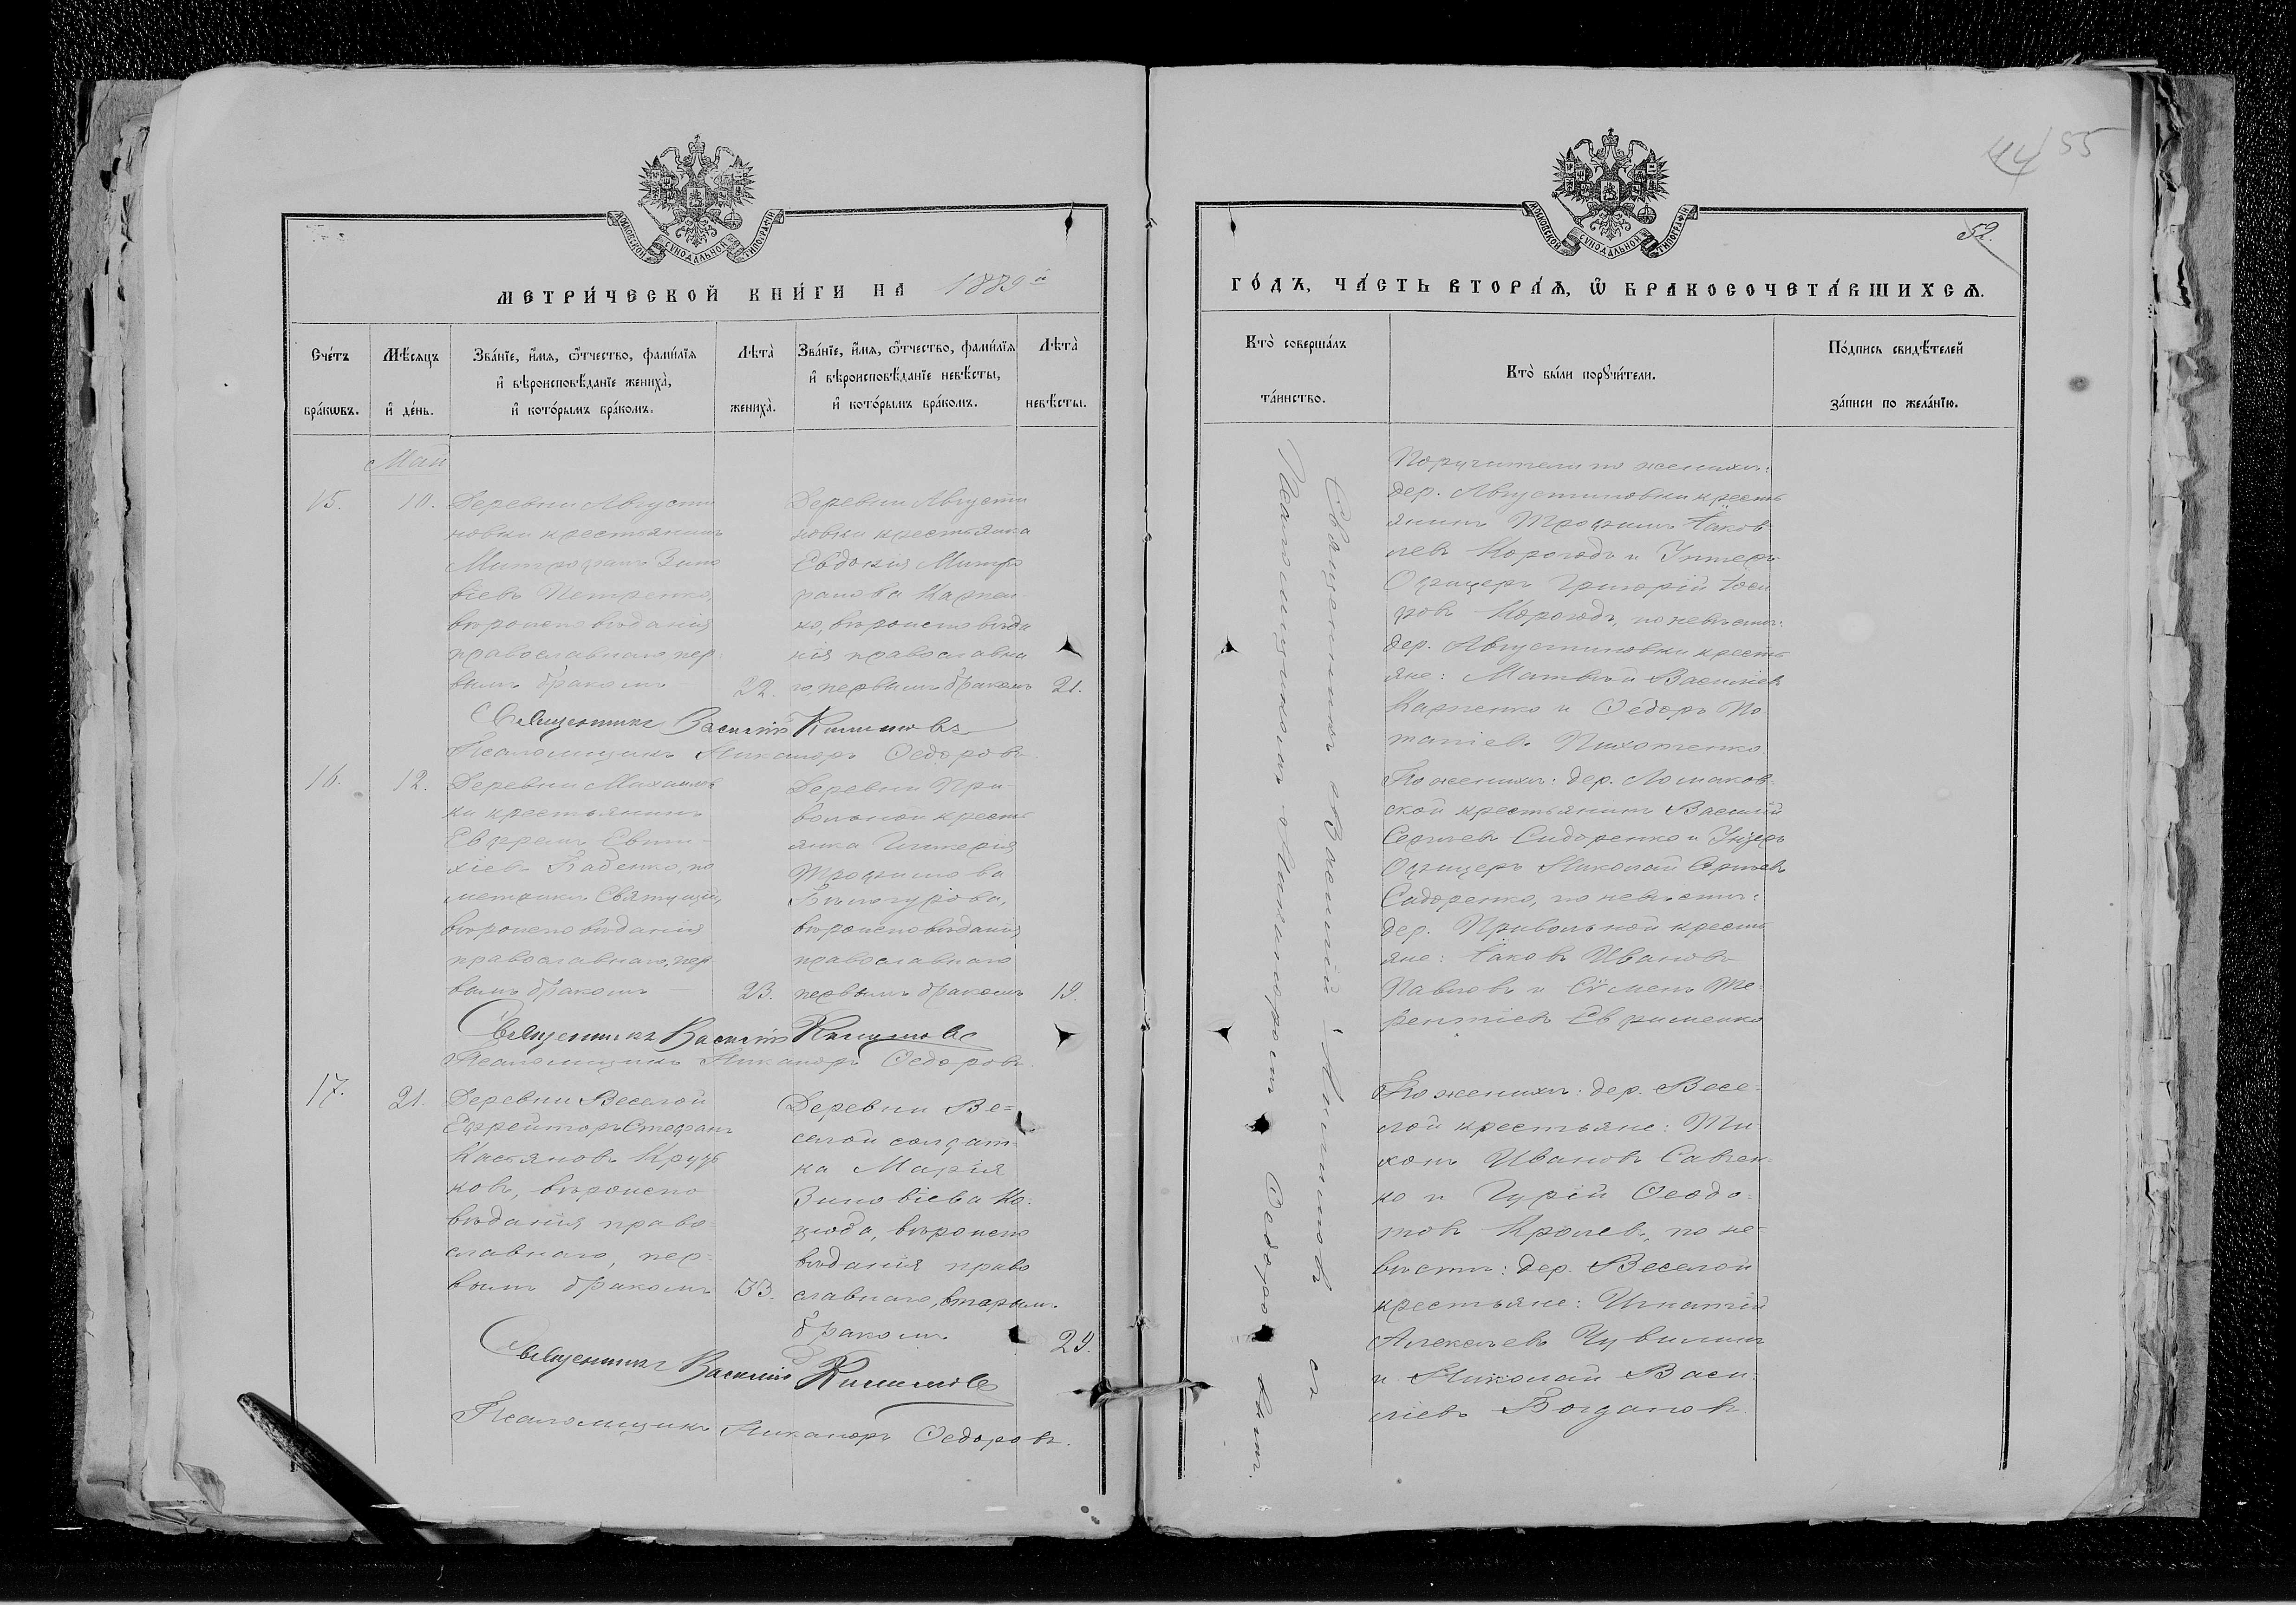 МОСКОВСКОЙ СѴНОДАЛЬНОЙ ТИПОГРАФІИ
МЕТРИ́ЧЕСКОЙ КНИ́ГИ НА 1889 й
Сче́тъ бра́кѡвъ.
Мѣ́сѧцъ и҆ де́нь.
Зва́нїе, и҆́мѧ, ѻ҆́тчество, фами́лїѧ
и҆ вѣроисповѣ́данїе жениха̀,
и҆ кото́рымъ бра́комъ.
Лѣта̀ жениха̀.
Зва́нїе, и҆́мѧ, ѻ҆́тчество, фами́лїѧ
и҆ вѣроисповѣ́данїе невѣ́сты,
и҆ кото́рымъ бра́комъ.
Лѣта̀ невѣ́сты.
Май
15.
10.
Деревни Августи
новки крестьянинъ
Митрофанъ Зино
віевъ Петренко,
вѣроисповѣданія
православнаго пер
вымъ бракомъ
22.
Деревни Августи
новки крестьянка
Евдокія Митро
фанова Карпен
ко, вѣроисповѣда
нія православна
го первымъ бракомъ
21.
Священникъ Василій
Псаломщикъ Никаноръ Ѳедоровъ
16.
12.
Деревни Михайлов
ки крестьянинъ
Ефремъ Евти-
хіевъ Баденко, по
метрикѣ
вѣроисповѣданія
православнаго, пер
вымъ бракомъ —
23.
Деревни При-
вольной кресть
янка Гликерія
Трофимова
Бѣлогурова,
вѣроисповѣданія
православнаго
первымъ бракомъ
19.
Священникъ Василій
Псаломщикъ Никаноръ Ѳедоровъ
17.
21.
Деревни Веселой
Ефрейторъ Стефанъ
Касьяновъ
вѣроиспо
вѣданія право-
славнаго, пер-
вымъ бракомъ
33.
Деревни Ве=
селой солдат-
ка Марія
Зиновіева Ко-
цюба, вѣроиспо
вѣданія право
славнаго, вторымъ
бракомъ
29.
Священникъ Василій
Псаломщикъ Никаноръ Ѳедоровъ.
44 55
52.
МОСКОВСКОЙ СѴНОДАЛЬНОЙ ТИПОГРАФІИ
ГО́ДЪ, ЧА́СТЬ ВТОРА́Ѧ, Ѽ БРАКОСОЧЕТА́ВШИХСѦ.
Кто̀ соверша́лъ
та́инство.
Кто̀ бы́ли порꙋчи́тели.
По́дпись свидѣ́телей
за́писи по жела́нїю.
Священникъ Василій съ
Псаломщикомъ Никаноромъ Ѳедоровымъ.
Поручители по женихѣ:
дер. Августиновки кресть
янинъ Трофимъ Іаков-
левъ Корогодъ и Унтеръ-
Офицеръ Григорій Іоси
фовъ Корогодъ, по невѣстѣ:
дер. Августиновки кресть
яне: Матвѣй Васильевъ
Карпенко и Ѳедоръ По
тапіевъ Пихотенко.
По женихѣ: дер. Ломаков-
ской крестьянинъ Василій
Сергѣевъ Сидоренко и Унтеръ
Офицеръ Николай Сергѣевъ
Сидоренко, по невѣстѣ:
дер. Привольной кресть
яне: Іаковъ Ивановъ
Павловъ и Сѵмеонъ Те-
рентіевъ Ефрименко
По женихѣ: дер. Весе-
лой крестьяне: Ти-
хонъ Ивановъ Савчен-
ко и Гурій Ѳеодо-
товъ Кролевъ, по не-
вѣстѣ: дер. Веселой
крестьяне: Игнатій
Алексѣевъ Чувилинъ
и Николай Васи-
ліевъ Богдановъ